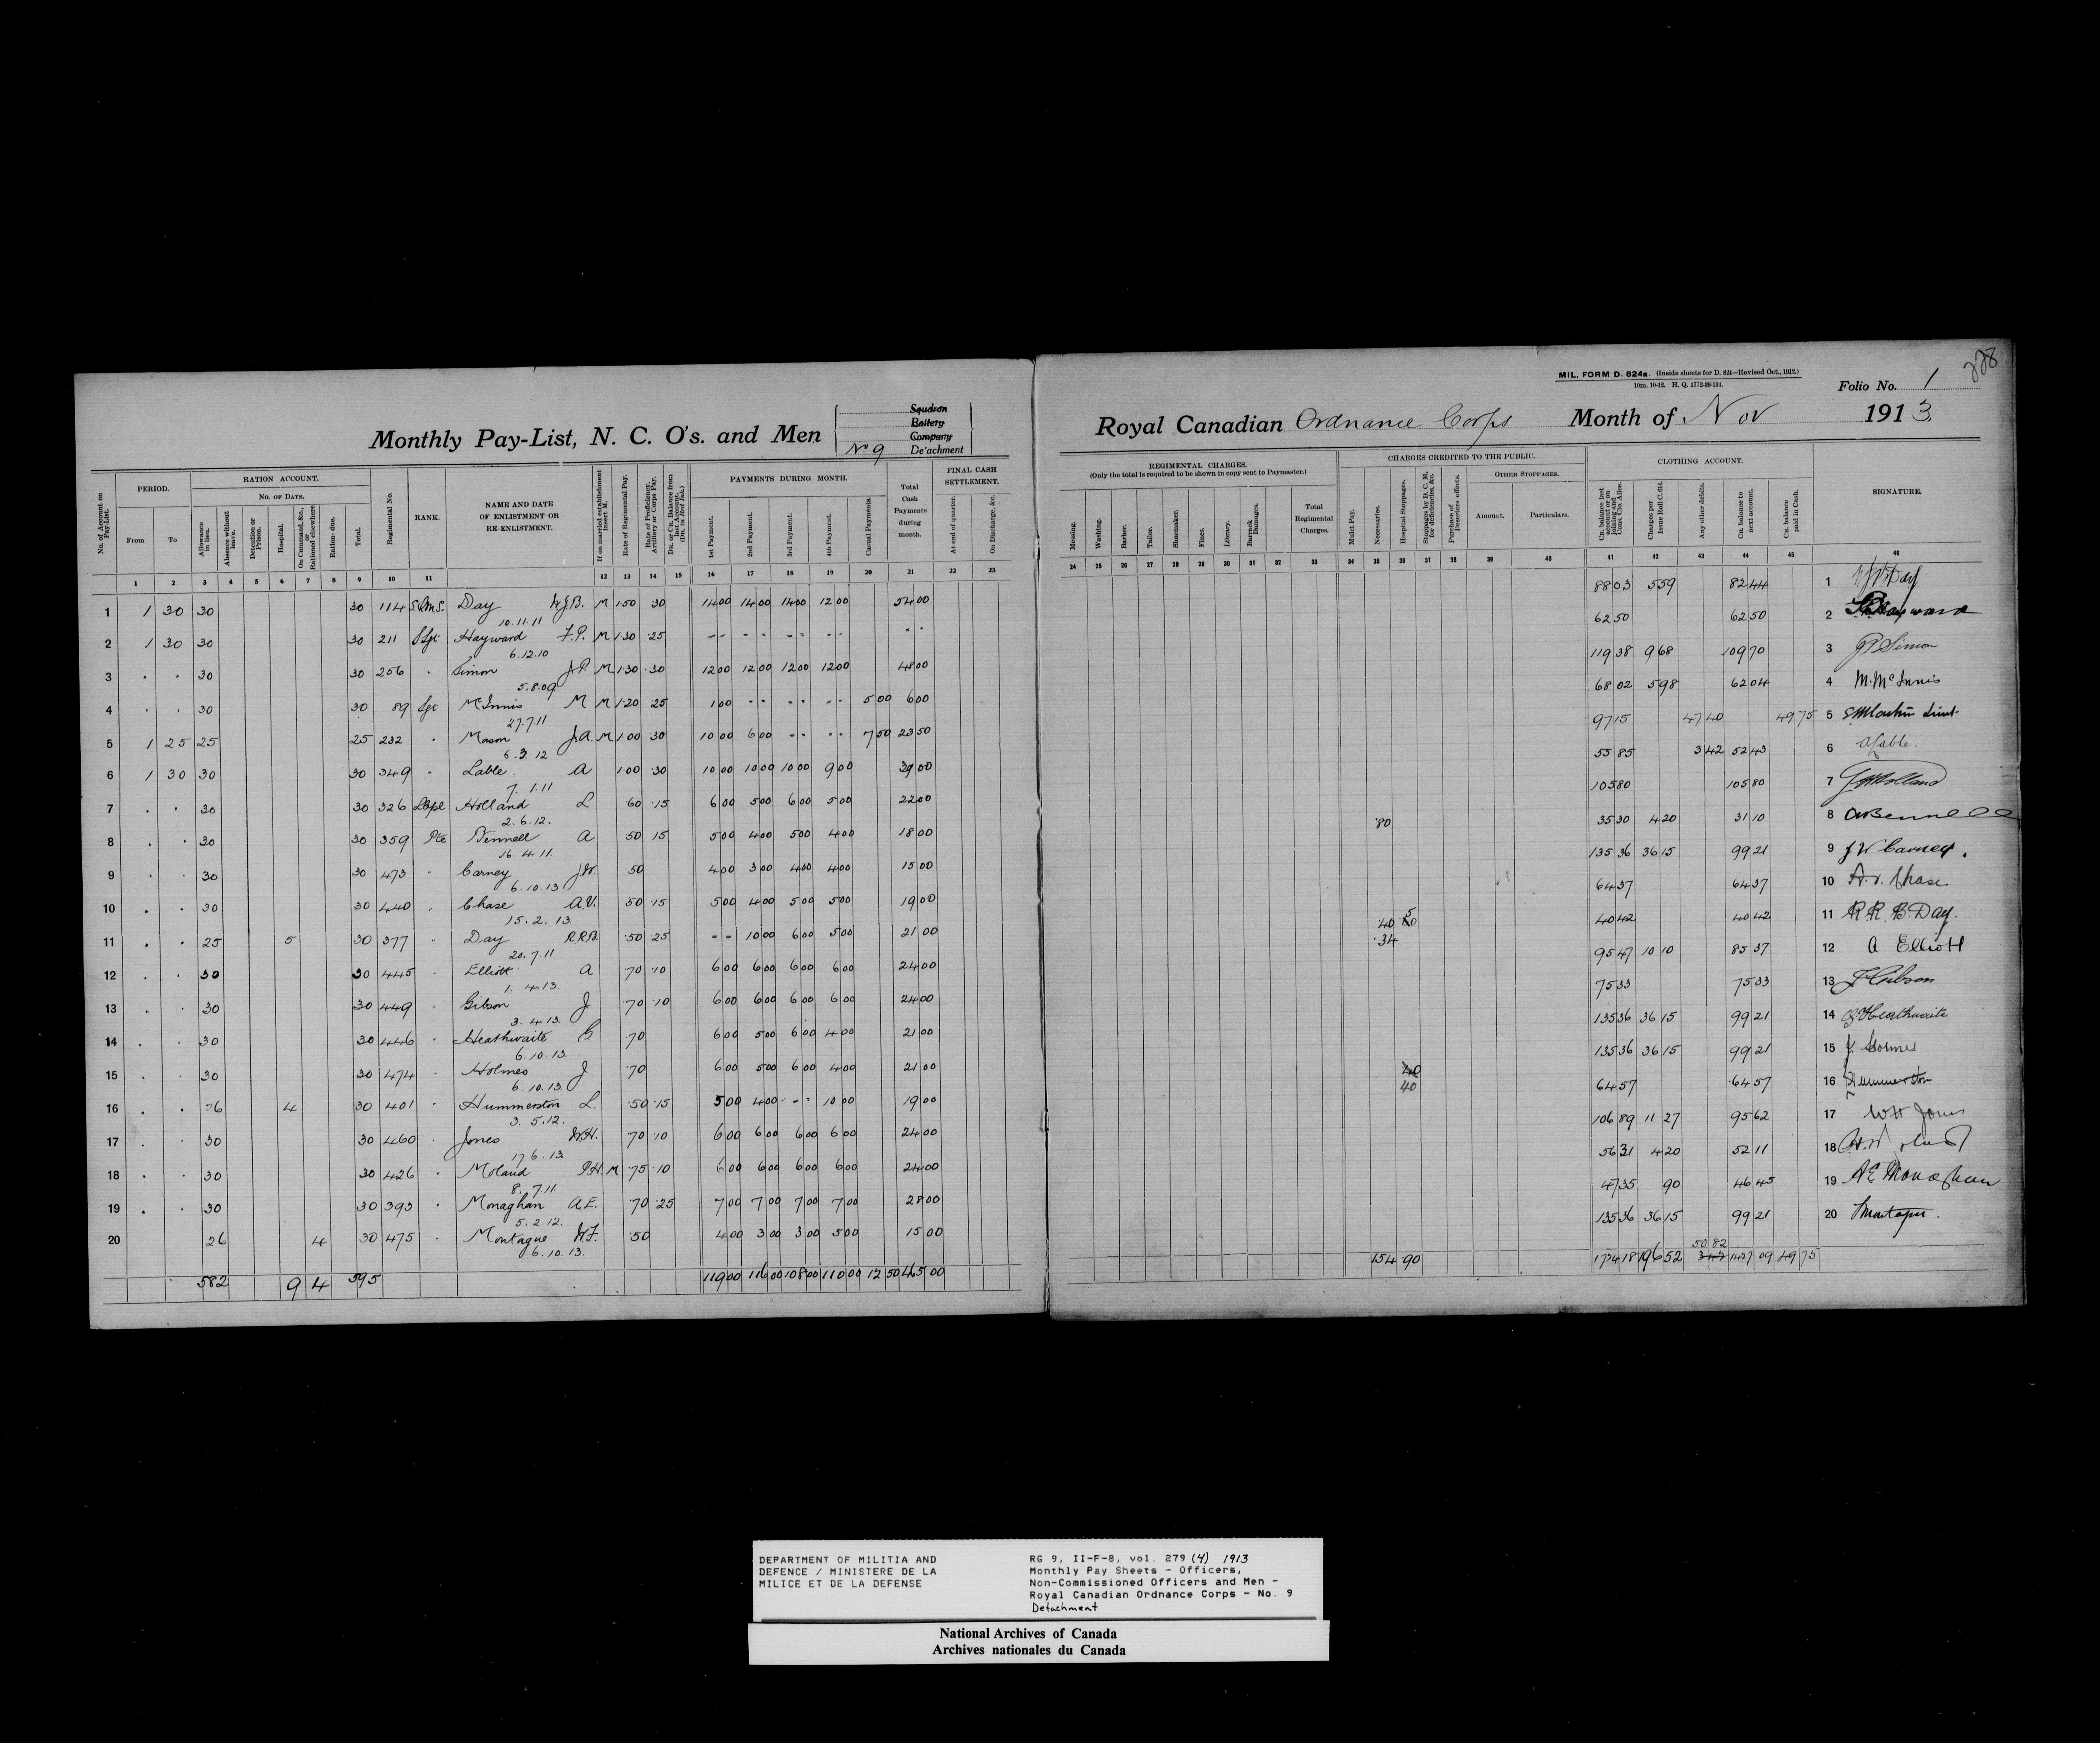 228
MIL. FORM D. 824a. (Inside sheets for D. 824—Revised Oct., 1912.)
10m. 10-12. H. Q. 1772-39-131.
Folio No. 1
Monthly Pay-List, N. C. O's. and Men
Squadron
Battery
Company
No 9 De'achment
Royal Canadian Ordnance Corps Month of Nov 1913
No. of Account on Pay-List.
PERIOD. From To
RATION ACCOUNT.
No. of Days.
Allowance in lieu. Absence without leave. Detention or Prison. Hospital. On Command, &c., or Rationed elsewhere Rations due. Total.
Regimental No. RANK. NAME AND DATE OF ENLISTMENT OR RE-ENLISTMENT.
If on married establishment insert M. Rate of Regimental Pay. Rate of Proficiency, Artillery or Corps Pay. Dr. or Cr. Balance from last Account. (Dr. in Red Ink.)
PAYMENTS DURING MONTH.
1st Payment. 2nd Payment. 3rd Payment. 4th Payment. Casual Payments.
Total Cash Payments during month.
FINAL CASH SETTLEMENT.
At end of quarter. On Discharge, &c.
REGIMENTAL CHARGES.
(Only the total is required to be shown in copy sent to Paymaster.)
Messing. Washing. Barber. Tailor. Shoemaker. Fines. Library. Barrack Damages. Total Regimental Charges.
CHARGES CREDITED TO THE PUBLIC.
Mulct Pay. Necessaries. Hospital Stoppages. Stoppages by D. C. M. for deficiencies, &c. Purchase of Deserters effects.
OTHER STOPPAGES.
Amount. Particulars.
CLOTHING ACCOUNT.
Cr. balance last account or on joining and Cons. Clo. Allce. Charges per Issue Roll C. 614. Any other debits. Cr. balance to next account. Cr. balance paid in Cash.
SIGNATURE.
1 2 3 4 5 6 7 8 9 10 11 12 13 14 15 16 17 18 19 20 21 22 23
24 25 26 27 28 29 30 31 32 33 34 35 36 37 38 39 40 41 42 43 44 45 46
1 1 30 30 30 114 S.Q.M.S. Day W.J.B. M 1.50 30 14 00 14 00 14 00 12 00 54 00 88 03 5 59 82 44 1 W J B Day
10.11.11
2 1 30 30 30 211 S Sgt Hayward F.P. M 1.30 .25 - - - - - - - - - - 62 50 62 50 2 Hayward
6.12.10
3 . . 30 30 256 . Simon J.P. M 1.30 .30 12 00 12 00 12 00 12 00 48 00 119 38 9 68 109 70 3 J P Simon
5.8.09
4 . . 30 30 89 Sgt McInnis M M 1.20 .25 1 00 - - - - - - 5 00 6 00 68 02 5 98 62 04 4 M. McInnis
27.7.11
5 1 25 25 25 232 . Mason J.A. M 1.00 30 10 00 6 00 - - - - 7 50 23 50 97 15 47 40 49 75 5 Lieut.
6.3.12
6 1 30 30 30 349 . Lable A 1.00 .30 10 00 10 00 10 00 9 00 39 00 55 85 3 42 52 43 6 A Lable.
7.1.11
7 . . 30 30 326 L Cpl Holland L .60 .15 6 00 5 00 6 00 5 00 22 00 105 80 105 80 7 Holland
2.6.12.
8 . . 30 30 359 Pte Bennell A .50 15 5 00 4 00 5 00 4 00 18 00 .80 35 30 4 20 31 10 8 A Bennell
16.4.11.
9 . . 30 30 473 . Carney J.W. 50 4 00 3 00 4 00 4 00 15 00 135 36 36 15 99 21 9 J W Carney.
6.10.13
10 . . 30 30 440 . Chase A.V. .50 .15 5 00 4 00 5 00 5 00 19 00 64 37 64 37 10 A. V. Chase
15.2.13.
11 . . 25 5 30 377 . Day R.R.B. .50 .25 - - 10 00 6 00 5 00 21 00 .40 50 40 42 40 42 11 R R B Day.
20.7.11
12 . . 30 30 445 . Elliott A .70 .10 6 00 6 00 6 00 6 00 24 00 .34 95 47 10 10 85 37 12 A Elliott
1.4.13.
13 . . 30 30 449 . Gibson J .70 .10 6 00 6 00 6 00 6 00 24 00 75 33 75 33 13 J Gibson
3.4.13.
14 . . 30 30 446 . Heathwaite G .70 6 00 5 00 6 00 4 00 21 00 135 36 36 15 99 21 14 G Heathwaite
6.10.13.
15 . . 30 30 474 . Holmes J .70 6 00 5 00 6 00 4 00 21 00 135 36 36 15 99 21 15 J Holmes
6.10.13
16 . . 26 4 30 401 . Hummerston L. .50 .15 5 00 4 00 - - 10 00 19 00 40 40 64 57 64 57 16 Hummerston
3.5.12.
17 . . 30 30 460 . Jones W.H. 70 10 6 00 6 00 6 00 6 00 24 00 106 89 11 27 95 62 17 W H Jones
17.6.13
18 . . 30 30 426 . Moland P.H. M .75 .10 6 00 6 00 6 00 6 00 24 00 56 31 4 20 52 11 18
8.7.11
19 . . 30 30 393 . Monaghan A.E. .70 25 7 00 7 00 7 00 7 00 28 00 47 35 90 46 45 19 A E Monaghan
5.2.12.
20 26 4 30 475 . Montague W.F. .50 4 00 3 00 3 00 5 00 15 00 135 36 36 15 99 21 20 Montague.
6.10.13.
582 9 4 595 119 00 116 00 108 00 110 00 12 50 465 00 1 54 .90 1774 18 196 52 50 82 1477 09 49 75
DEPARTMENT OF MILITIA AND
DEFENCE / MINISTERE DE LA
MILICE ET DE LA DEFENSE
RG 9, II-F-8, vol. 279 (4) 1913
Monthly Pay Sheets - Officers,
Non-Commissioned Officers and Men -
Royal Canadian Ordnance Corps - No. 9
Detachment
National Archives of Canada
Archives nationales du Canada